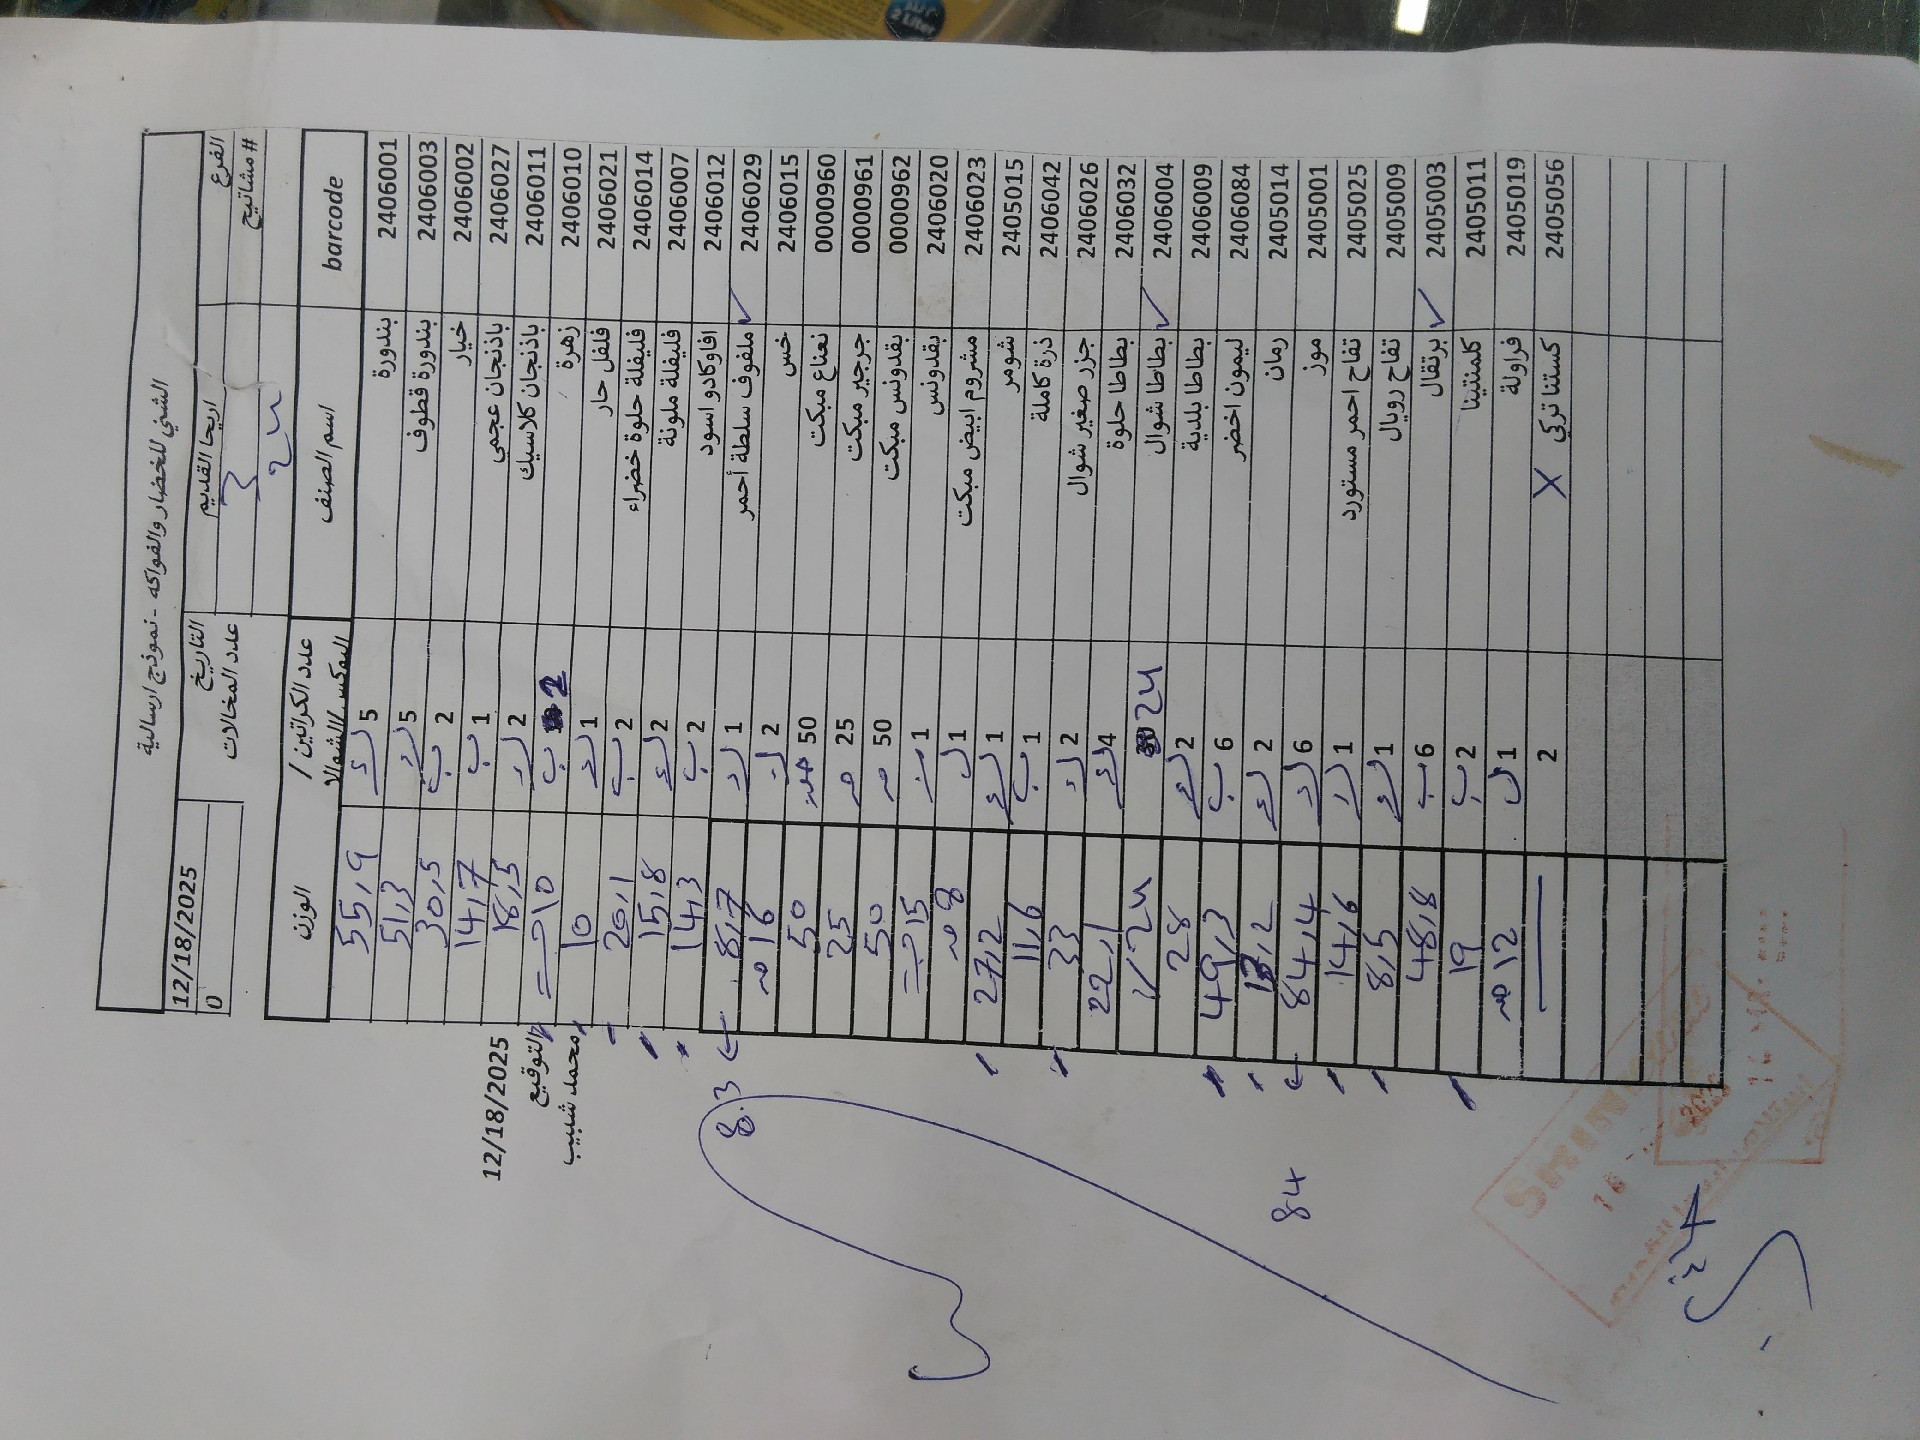 الشني للخضار والفواكه - نموذج ارسالية
الفرع اريحا القديم التاريخ 12/18/2025
#مشاتيح 3 عدد المخالات 0
24
barcode اسم الصنف عدد الكراتين / البوكس/الشوالا الوزن
2406001 بندورة 5 55,9
2406003 بندورة قطوف 5 51,3
2406002 خيار 2 ب 30,5
2406027 باذنجان عجمي 1 ب 14,7
2406011 باذنجان كلاسيك 2 18,5
2406010 زهرة 2 ب 10
2406021 فلفل حار 1 10
2406014 فليفلة حلوة خضراء 2 ب 20,1
2406007 فليفلة ملونة 2 15,8
2406012 افاوكادو اسود 2 ب 14,3
2406029 ملفوف سلطة أحمر ✓ 1 8,7
2406015 خس 2 16
0000960 نعناع مبكت 50 50
0000961 جرجير مبكت 25 25
0000962 بقدونس مبكت 50 50
2406020 بقدونس 1 15
2406023 مشروم ابيض مبكت 1 8
2405015 شومر 1 27,2
2406042 ذرة كاملة 1 ب 11,6
2406026 جزر صغير شوال 2 33
2406032 بطاطا حلوة 4 22,1
2406004 بطاطا شوال ✓ 24 24
2406009 بطاطا بلدية 2 28
2406084 ليمون اخضر 6 ب 49,3
2405014 رمان 2 12,2
2405001 موز 6 84,4
2405025 تفاح احمر مستورد 1 14,6
2405009 تفاح رويال 1 8,5
2405003 برتقال ✓ 6 ب 48,8
2405011 كلمنتينا 2 ب 19
2405019 فراولة 1 12
2405056 كستنا تركي X 2
12/18/2025
التوقيع
محمد شبيب
8.3
84